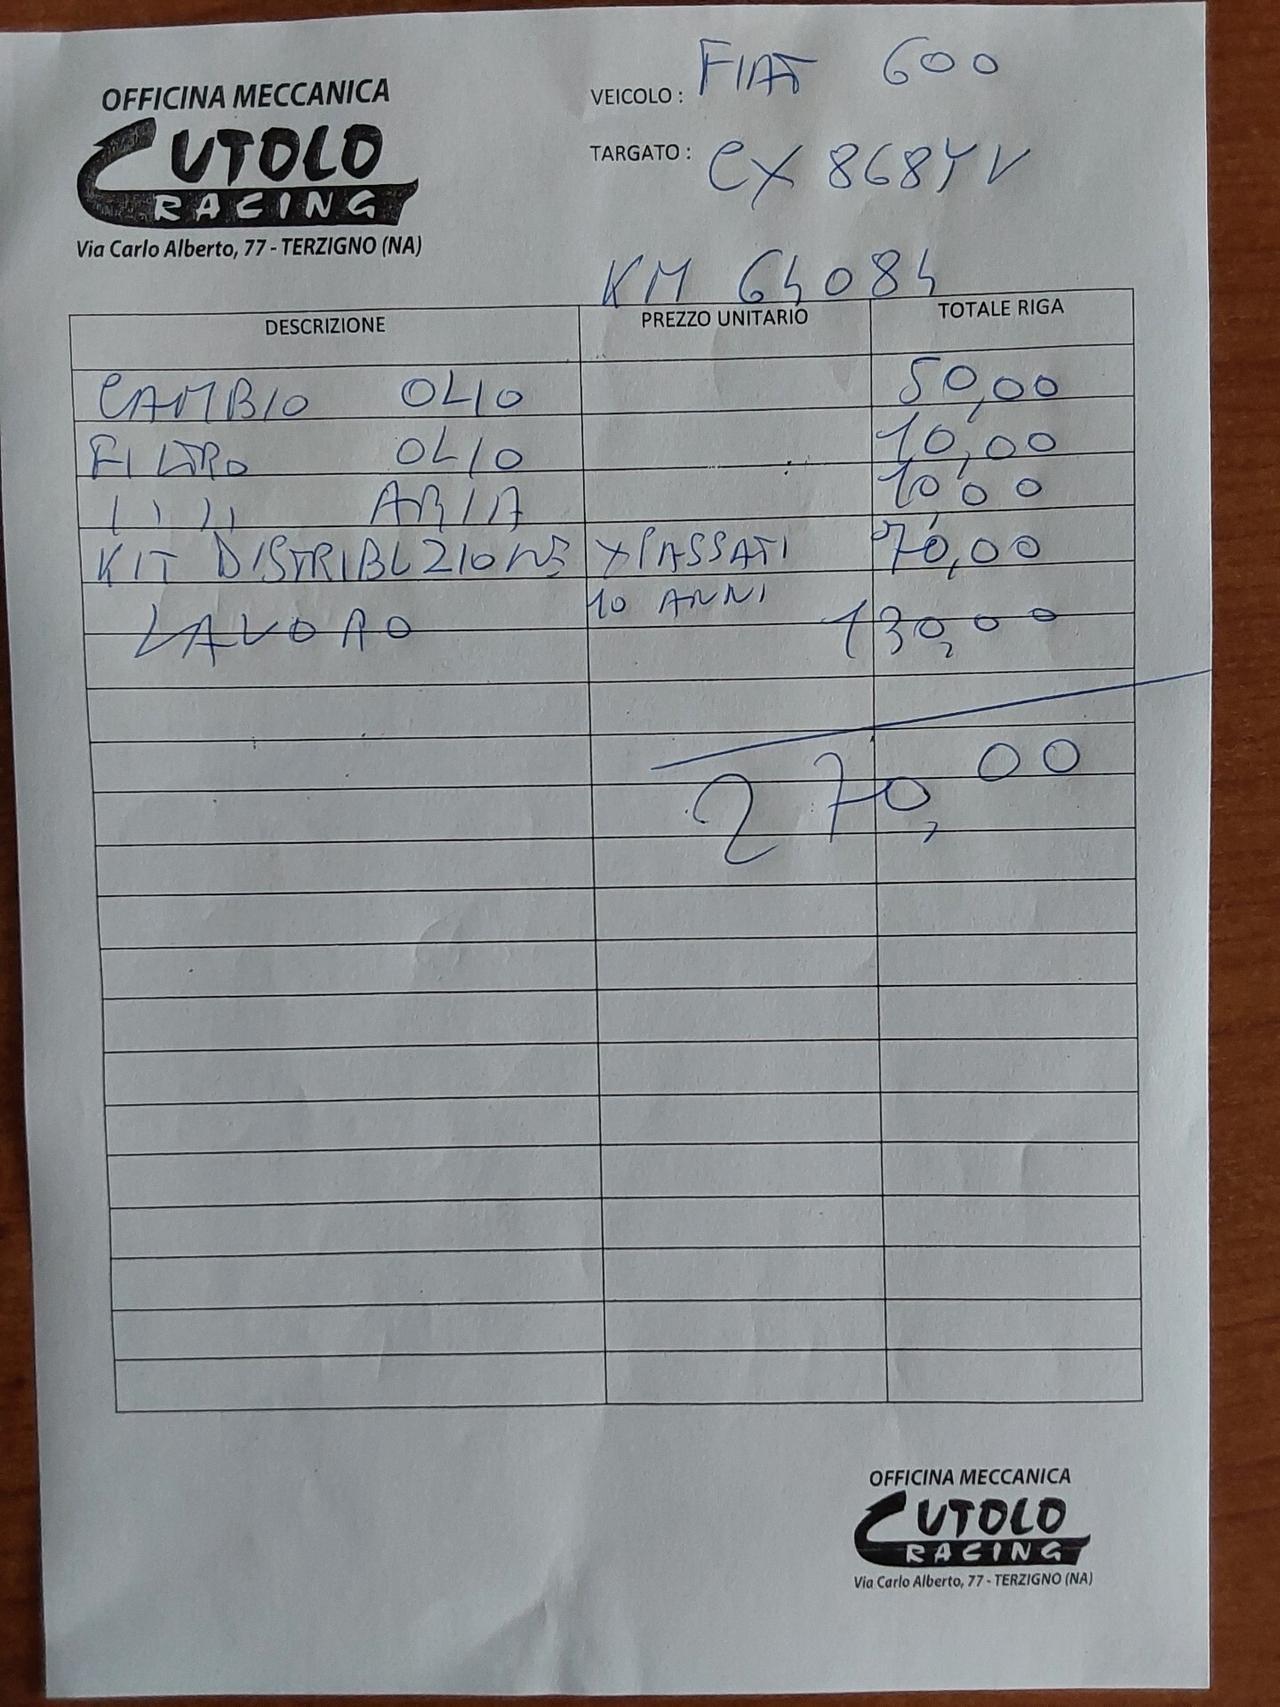 OFFICINA MECCANICA
CUTOLO
RACING
Via Carlo Alberto, 77 - TERZIGNO (NA)
VEICOLO : FIAT 600
TARGATO : CX 868YV
KM 64084
DESCRIZIONE PREZZO UNITARIO TOTALE RIGA
CAMBIO OLIO 50,00
FILTRO OLIO 10,00
" " ARIA 10,00
KIT DISTRIBUZIONE X PASSATI 70,00
10 ANNI
LAVORO 130,00
270,00
OFFICINA MECCANICA
CUTOLO
RACING
Via Carlo Alberto, 77 - TERZIGNO (NA)